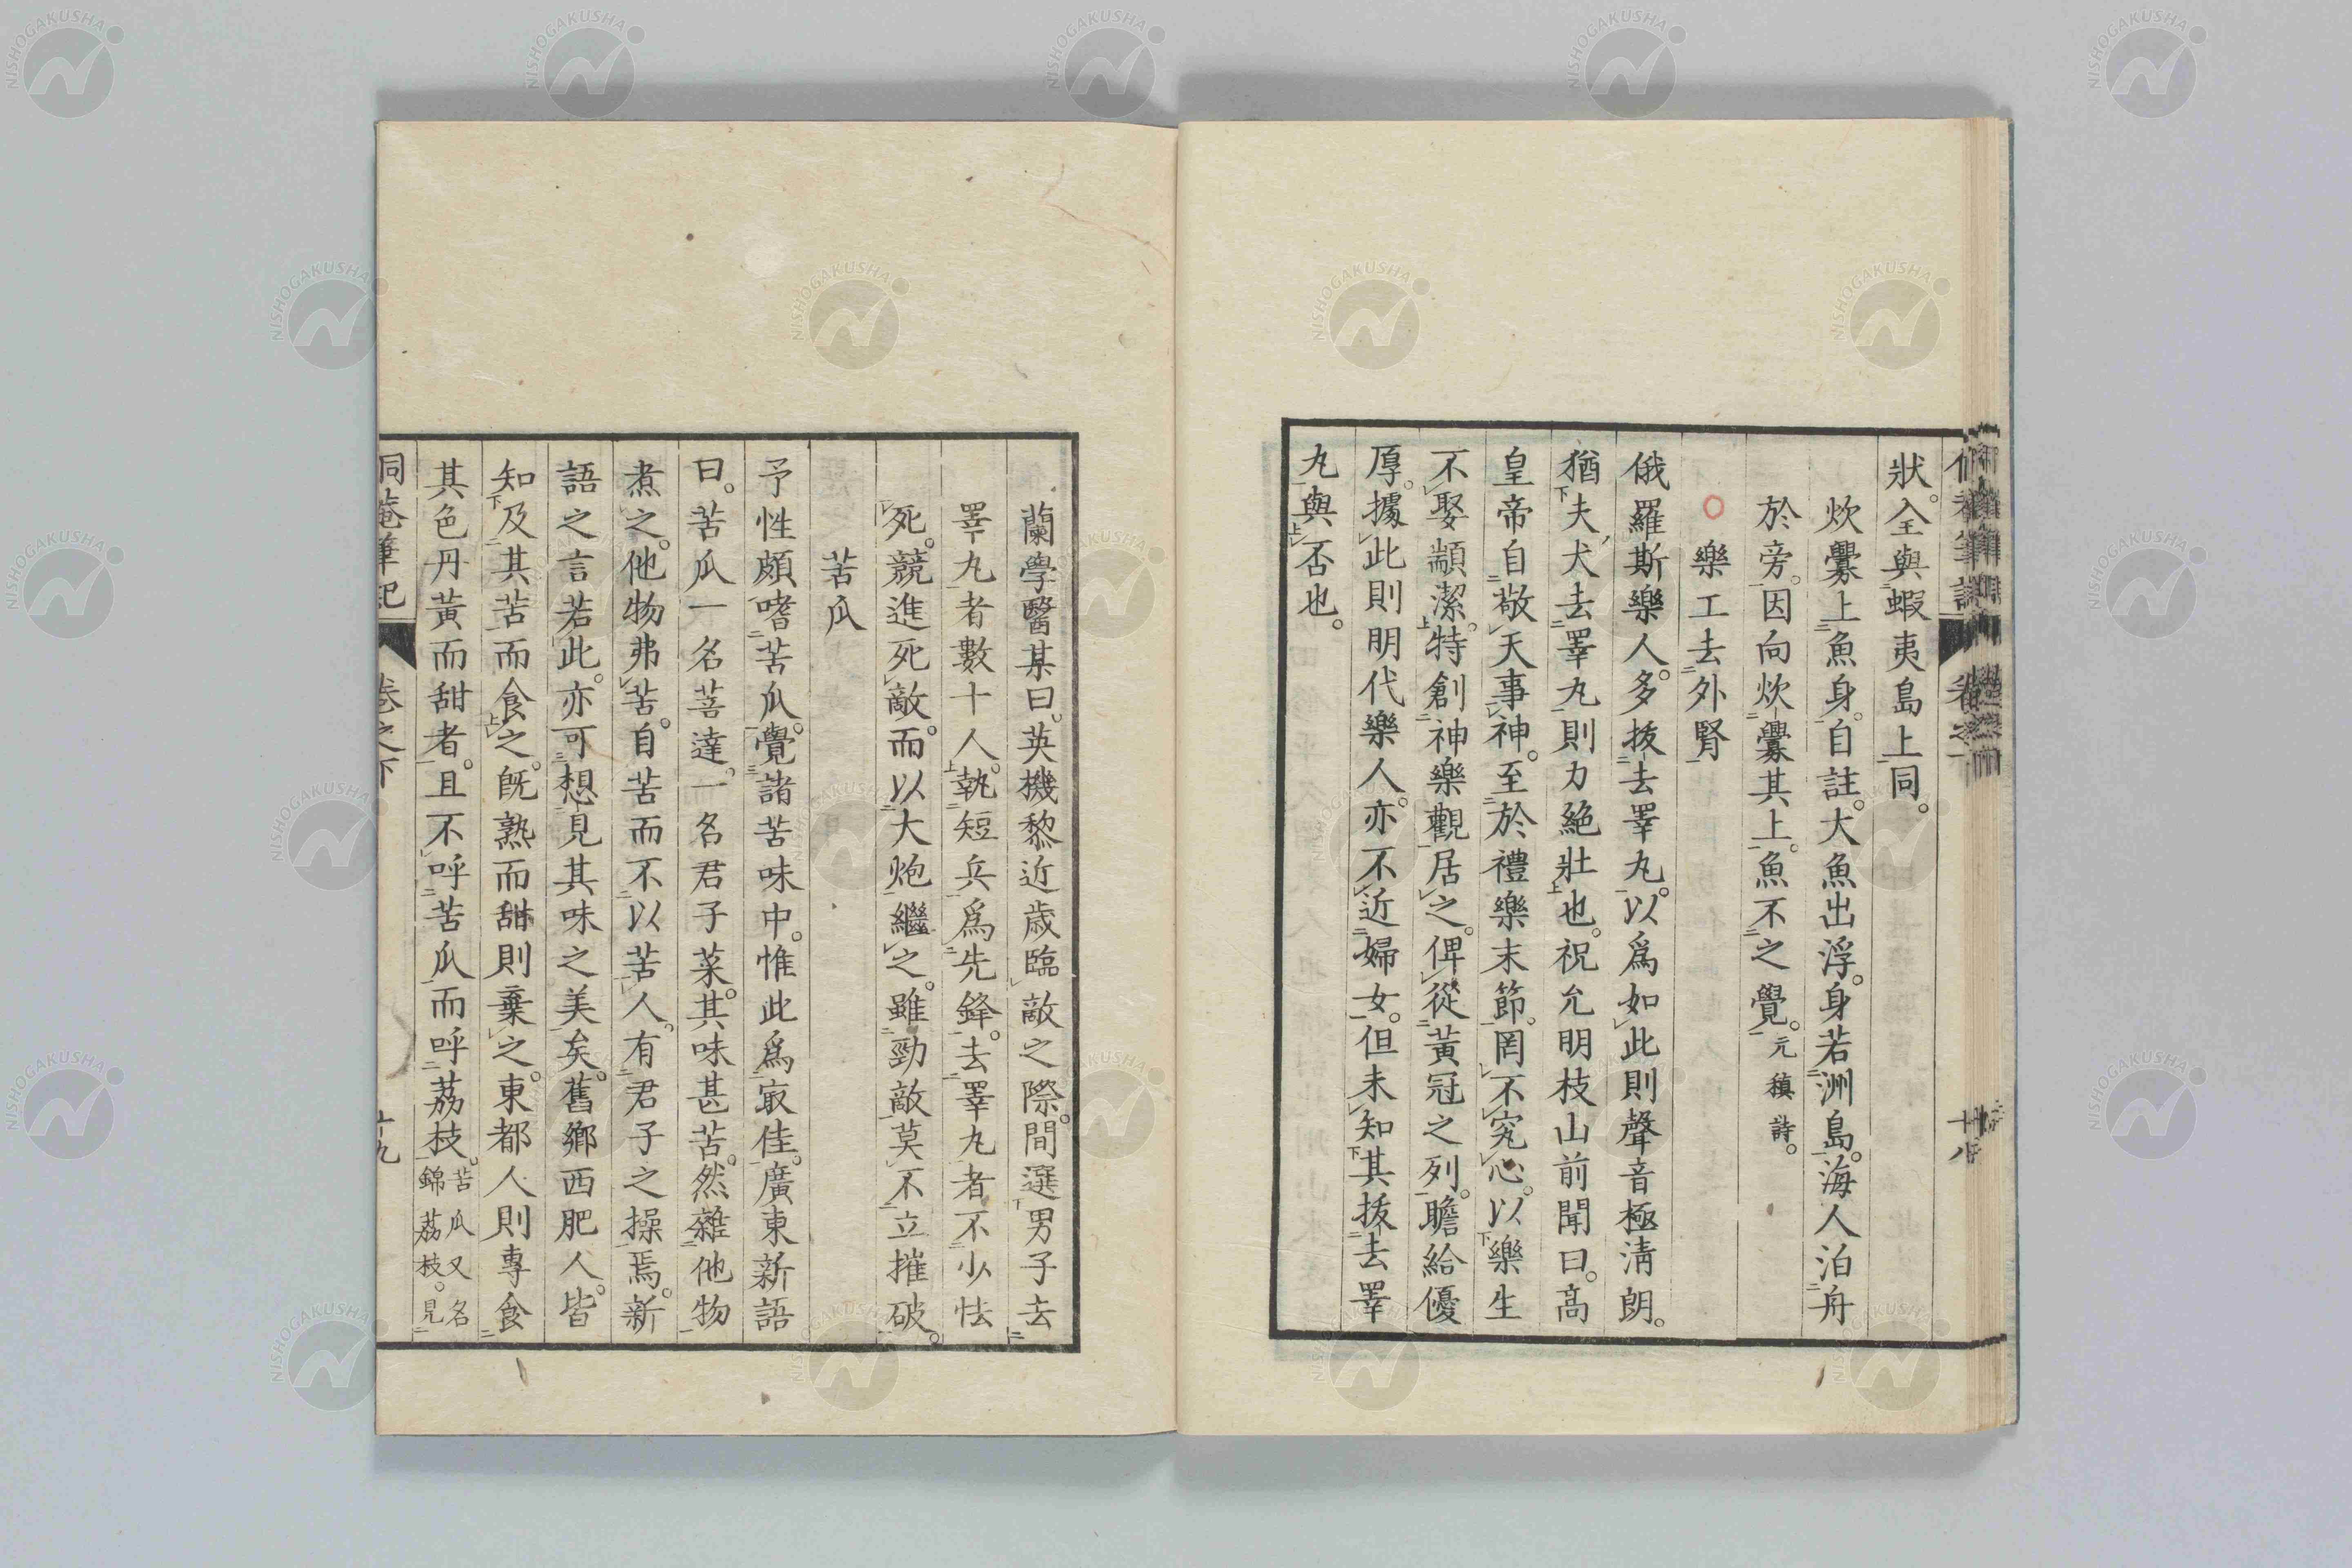 狀。全與蝦夷島上同。
炊爨上魚身。自註。大魚出浮。身若洲島。海人泊舟
於旁。因向炊爨其上。魚不之覺。元稹詩。
樂工去外腎
俄羅斯樂人。多拔去睪丸。以爲如此則聲音極淸朗。
猶夫犬去睪丸則力絶壯也。祝允明枝山前聞曰。高
皇帝自敬天事神。至於禮樂末節。罔不究心。以樂生
不娶顓潔。特創神樂觀居之。俾從黃冠之列。贍給優
厚。據此則明代樂人。亦不近婦女。但未知其拔去睪
丸與否也。
卷之
十八
蘭學醫某曰。英機黎近歲臨敵之際。間選男子去
睪丸者數十人。執短兵爲先鋒。去睪丸者不少怯
死。競進死敵。而以大炮繼之。雖勁敵莫不立摧破。
苦瓜
予性頗嗜苦瓜。覺諸苦味中。惟此爲㝡佳。廣東新語
曰。苦瓜一名菩達。一名君子菜。其味甚苦。然雜他物
煮之。他物弗苦。自苦而不以苦人。有君子之操焉。新
語之言若此。亦可想見其味之美矣。舊鄕西肥人。皆
知及其苦而食之。旣熟而甜則棄之。東都人則專食
其色丹黃而甜者。且不呼苦瓜而呼荔枝。苦瓜又名
錦荔枝。見
侗菴筆記
卷之下
十九
NISHOGAKUSHA